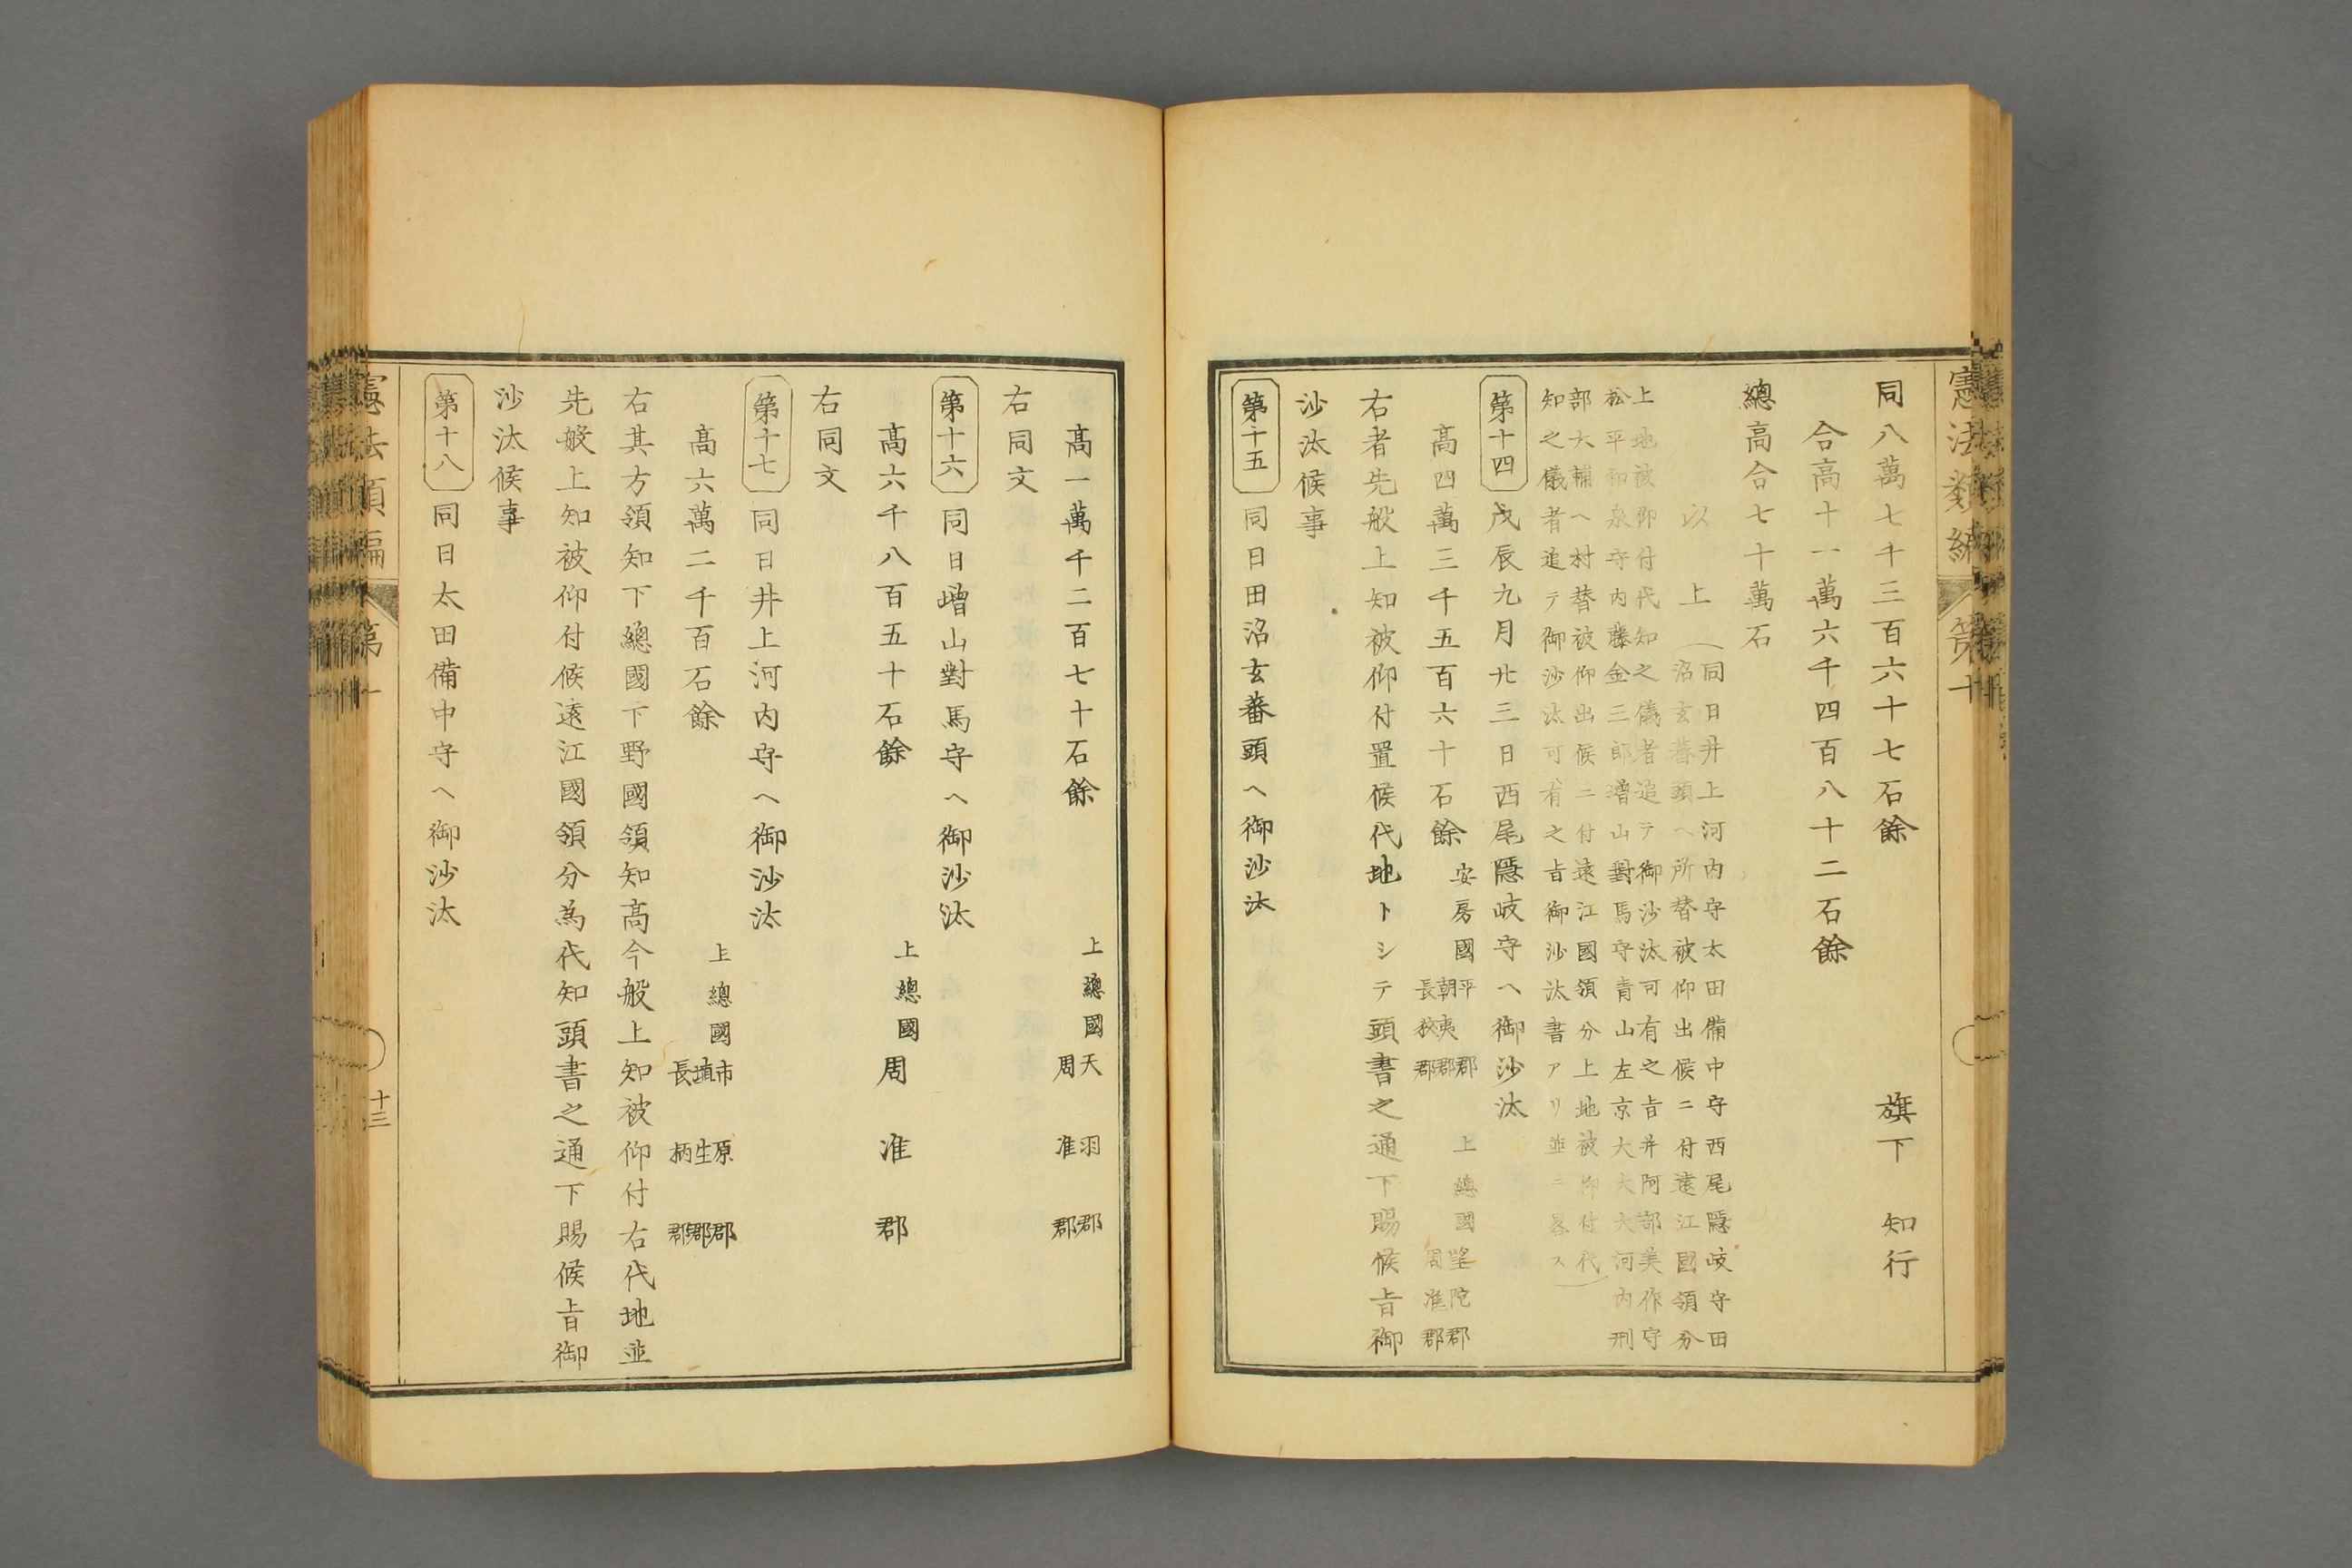 憲法類編 第十
同八萬七千三百六十七石餘 旗下 知行
合高十一萬六千四百八十二石餘
總高合七十萬石
以上
同日井上河内守太田備中守西尾隱岐守田
沼玄蕃頭ヘ所替被仰出候ニ付遠江國領分
上地被仰付代知之儀者追テ御沙汰可有之旨并阿部美作守
松平和泉守内藤金三郎増山對馬守青山左京大夫大河内刑
部大輔ヘ村替被仰出候ニ付遠江國領分上地被仰付代
知之儀者追テ御沙汰可有之旨御沙汰書アリ並ニ畧ス
第十四 戊辰九月廿三日西尾隱岐守ヘ御沙汰
高四萬三千五百六十石餘 安房國 平郡 朝夷郡 長狹郡 上總國 望陀郡 周准郡
右者先般上知被仰付置候代地トシテ頭書之通下賜候旨御
沙汰候事
第十五 同日田沼玄蕃頭ヘ御沙汰
高一萬千二百七十石餘 上總國 天羽郡 周准郡
右同文
第十六 同日増山對馬守ヘ御沙汰
高六千八百五十石餘 上總國 周准郡
右同文
第十七 同日井上河内守ヘ御沙汰
高六萬二千百石餘 上總國 市原郡 埴生郡 長柄郡
右其方領知下總國下野國領知高今般上知被仰付右代地並
先般上知被仰付候遠江國領分為代知頭書之通下賜候旨御
沙汰候事
第十八 同日太田備中守ヘ御沙汰
憲法類編 第十
十三